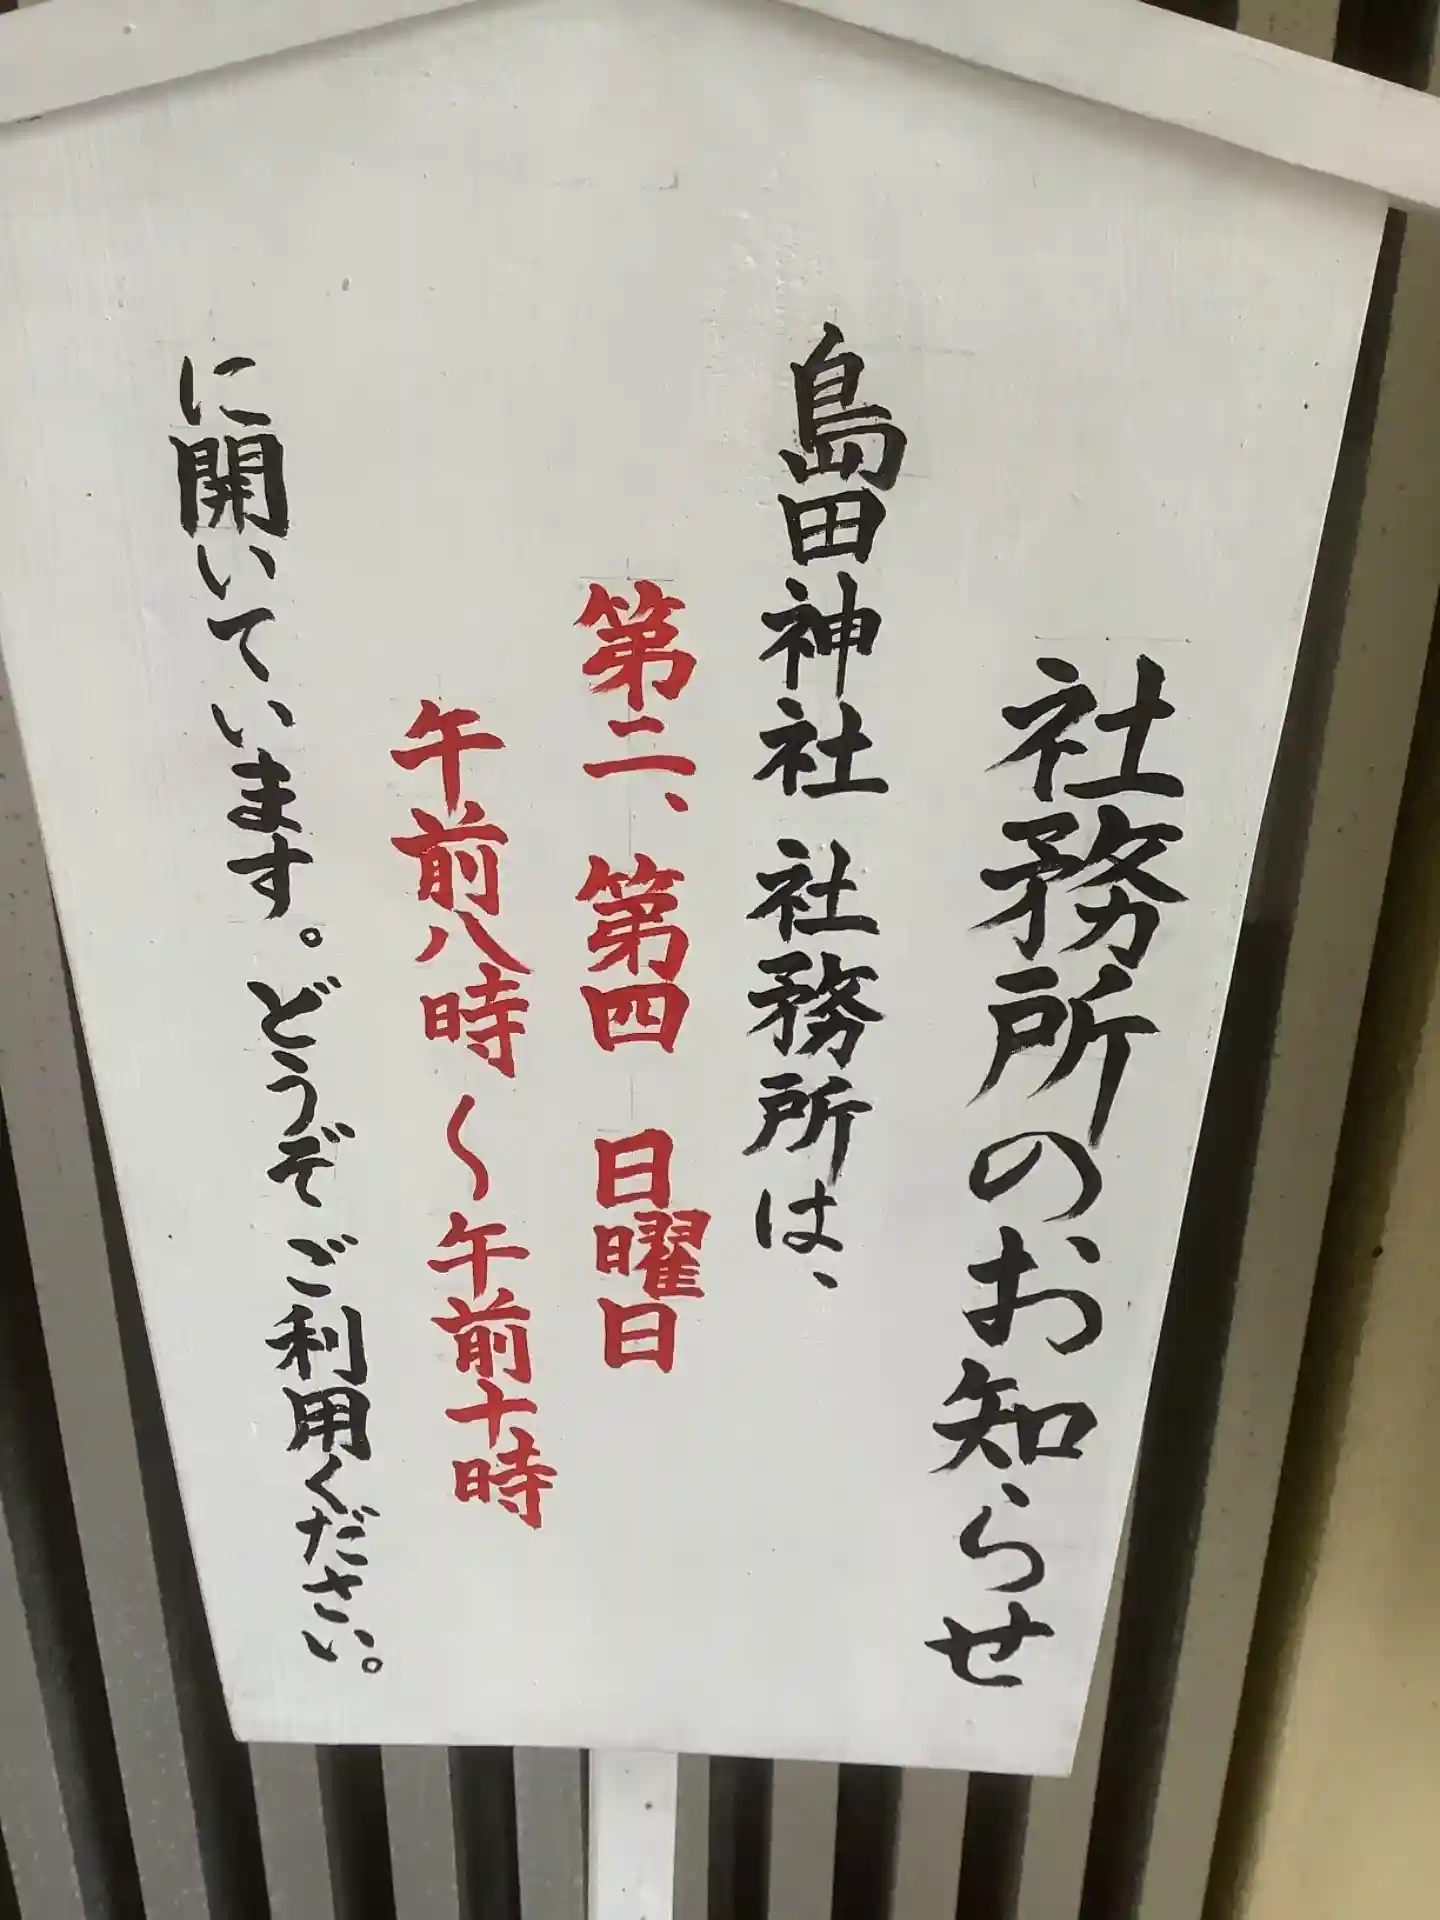 社務所のお知らせ
島田神社 社務所は、
第二、第四 日曜日
午前八時～午前十時
に開いています。どうぞご利用ください。